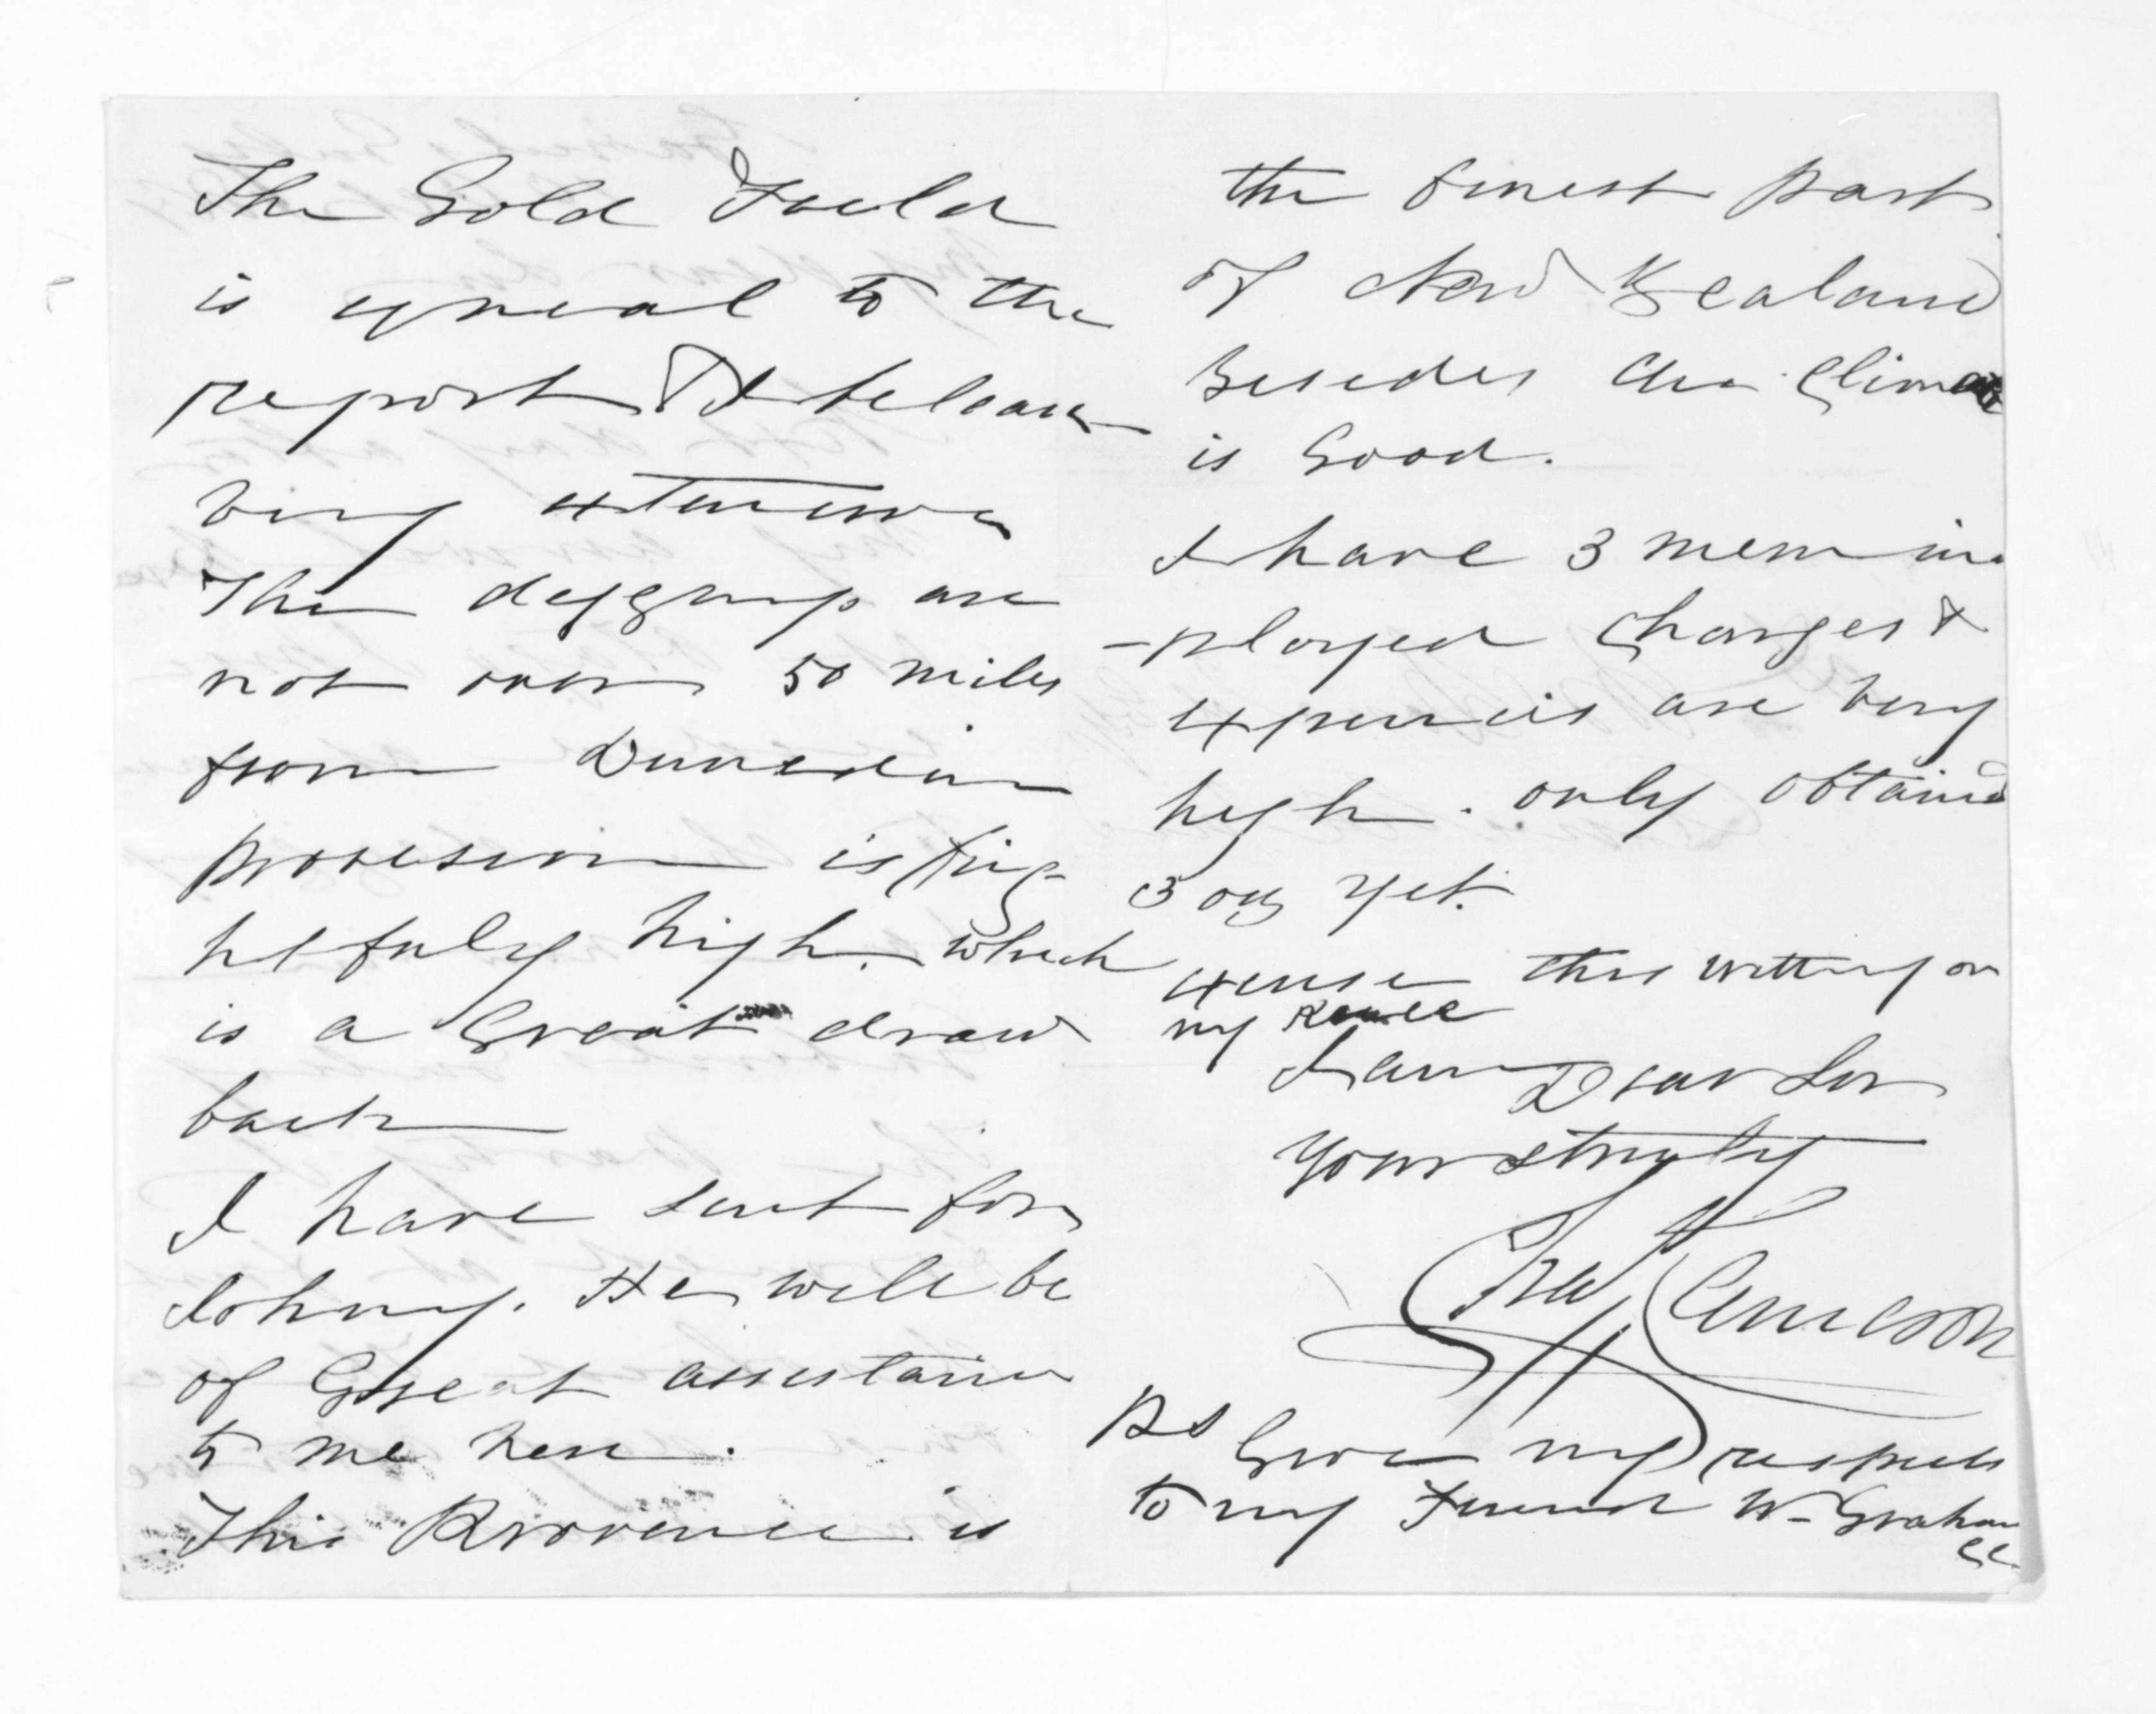 The Gold Field
is equeal to the
report & I beleave
very extensive
The diggings are
not over 50 miles
from Dunedin
provesion is frig-
htfuly high. which
is a Great draw
back
I have sent for
Johny. He will be
of Great assistance
to me here.
This Provence is
the finest part
of New Zealand
Besides the Climate
is Good.
I have 3 men im
-ployed Charges &
expenses are very
high. only obtained
3 oz yet.
excuse this writting on
my Knee
I am Dear Sir
Yours truly
Cameron
PS Give my respects
to my Friend W. Graham